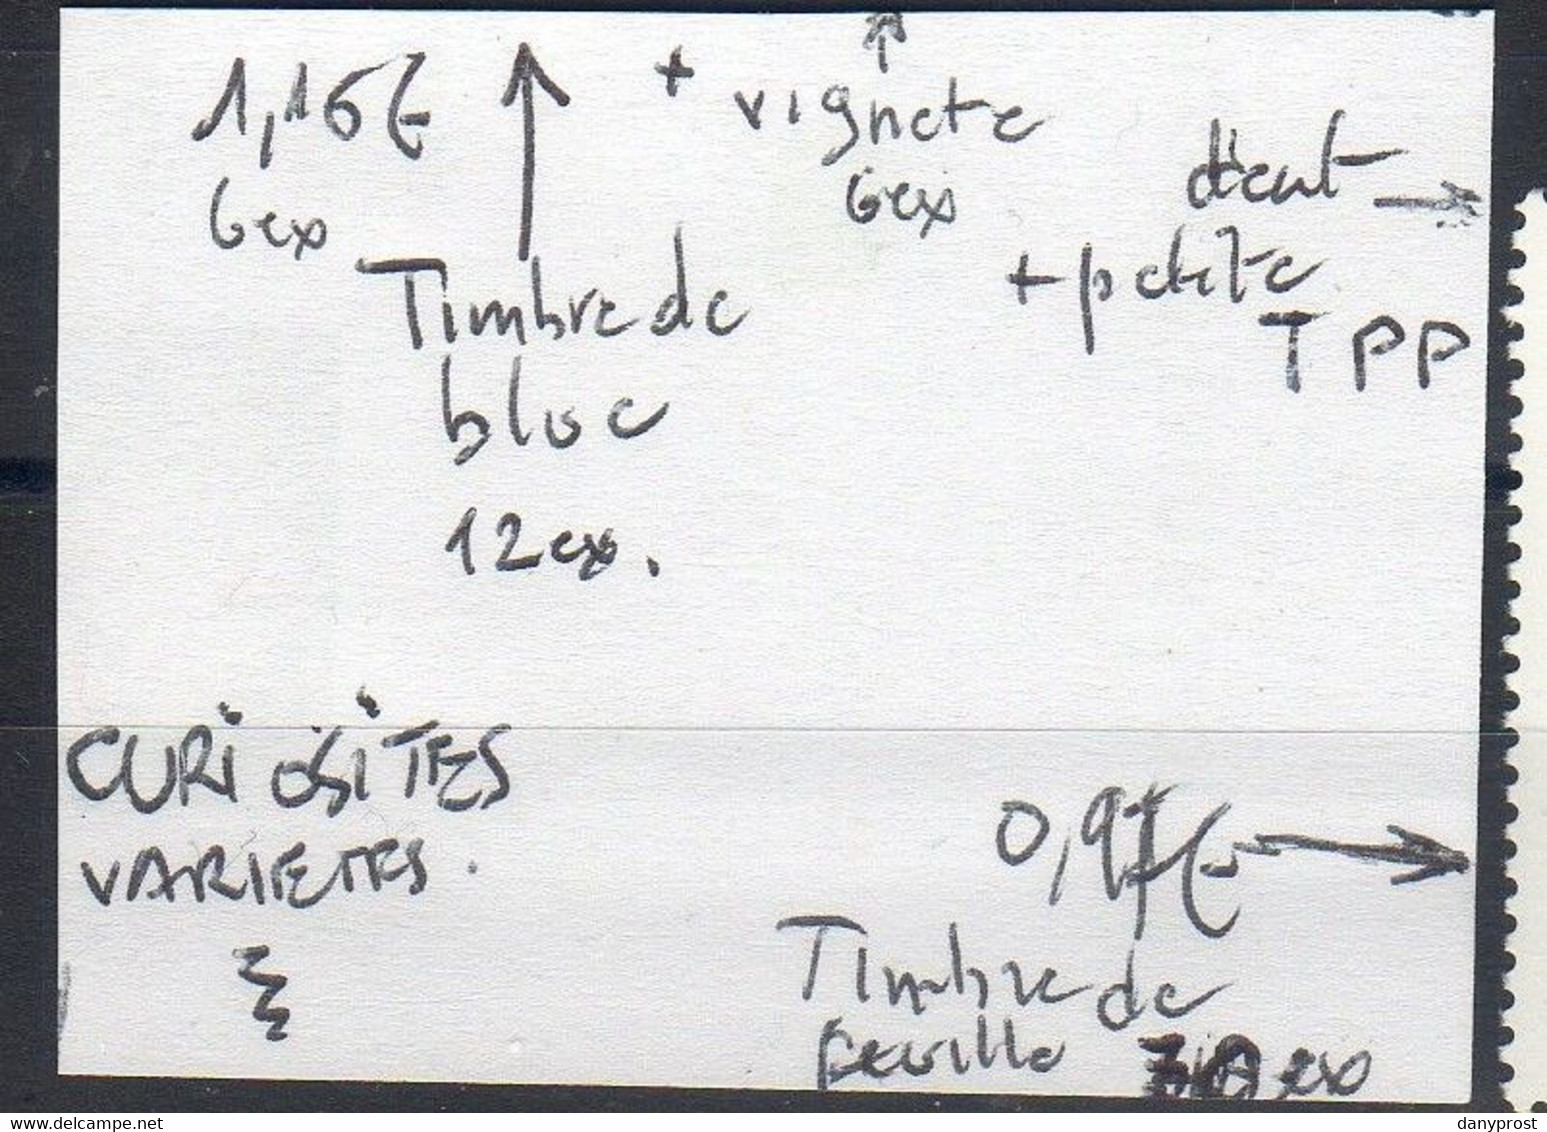 1,16€ ↑ + vignete ↑
6ex 6ex
Timbre de
bloc
12ex.
dent →
+ petite
TPP
CURIOSITES
VARIETES.
0,97€ →
Timbre de
feuille ex
delcampe.net
danyprost